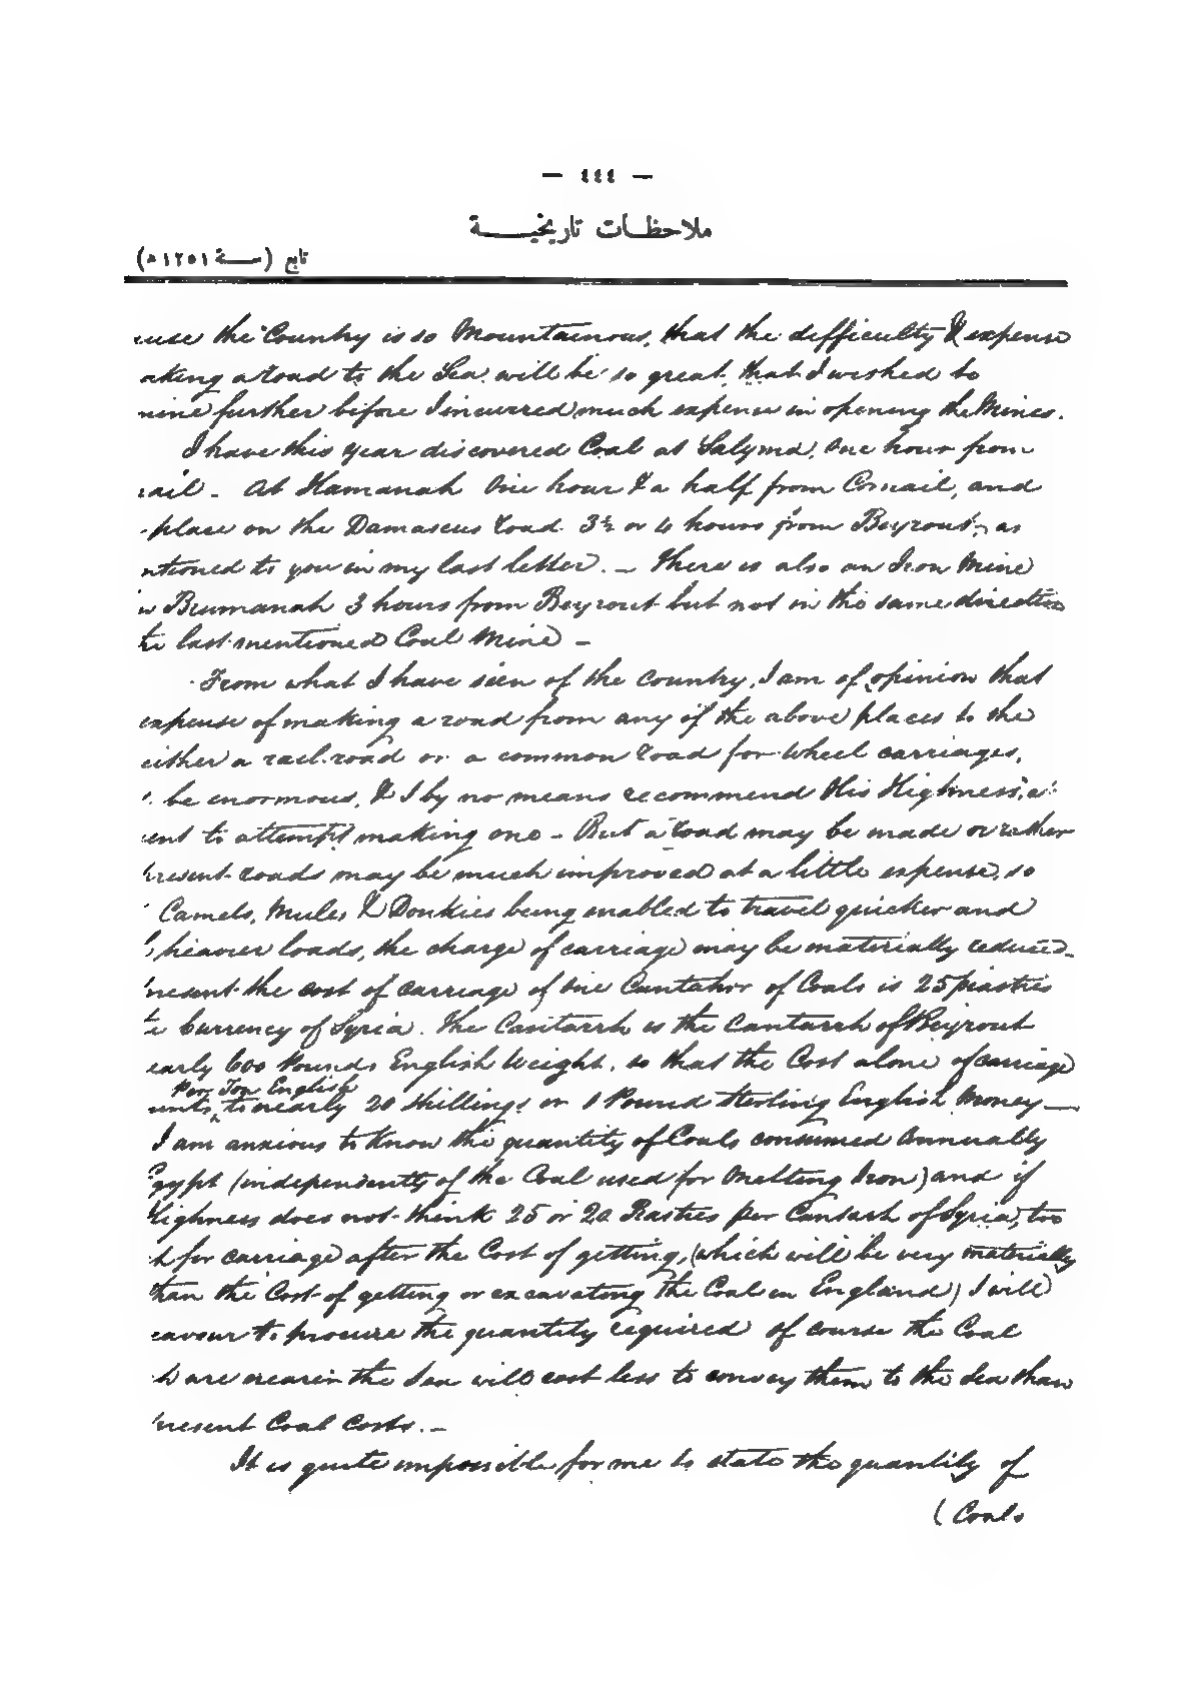 — ٤٤٤ —
ملاحظات تاريخية
تابع (سنة ١٢٥١ ه)
use the Country is so Mountainous, that the difficulty & expense
aking a road to the Sea will be so great, that I wished to
mine further before I incurred much expense in opening the Mines.
I have this year discovered Coal at Salyma, One hour from
ail - At Hamanah One hour & a half from Cornail, and
place on the Damascus road 3½ or 4 hours from Beyrout, as
ntioned to you in my last letter. - There is also an Iron Mine
Brumanah 3 hours from Beyrout but not in the same direction
the last mentioned Coal Mine -
From what I have seen of the Country, I am of opinion that
expense of making a road from any of the above places to the
either a rail road or a common road for wheel carriages,
be enormous, & I by no means recommend His Highness, at
ent to attempt making one - But a road may be made or rather
present roads may be much improved at a little expense, so
Camels, Mules & Donkies being enabled to travel quicker and
heavier loads, the charge of carriage may be materially reduced -
resent the cost of carriage of One Cantahr of Coals is 25 piastres
e Currency of Syria. The Cantarrh is the Cantarrh of Beyrout
early 600 Pounds English Weight, so that the Cost alone of carriage
Per Ton English
unts, to nearly 20 Shillings or 1 Pound Sterling English Money —
I am anxious to know the quantity of Coals consumed Annually
Egypt (independently of the Coal used for Melting Iron) and if
Highness does not think 25 or 20 Piastres per Cantarh of Syria, too
h for carriage after the Cost of getting, (which will be very materially
than the Cost of getting or excavating the Coal in England) I will
eavour to procure the quantity required of course the Coal
h are nearer the Sea will cost less to convey them to the Sea than
present Coal Costs. -
It is quite impossible for me to state the quantity of
(Coals